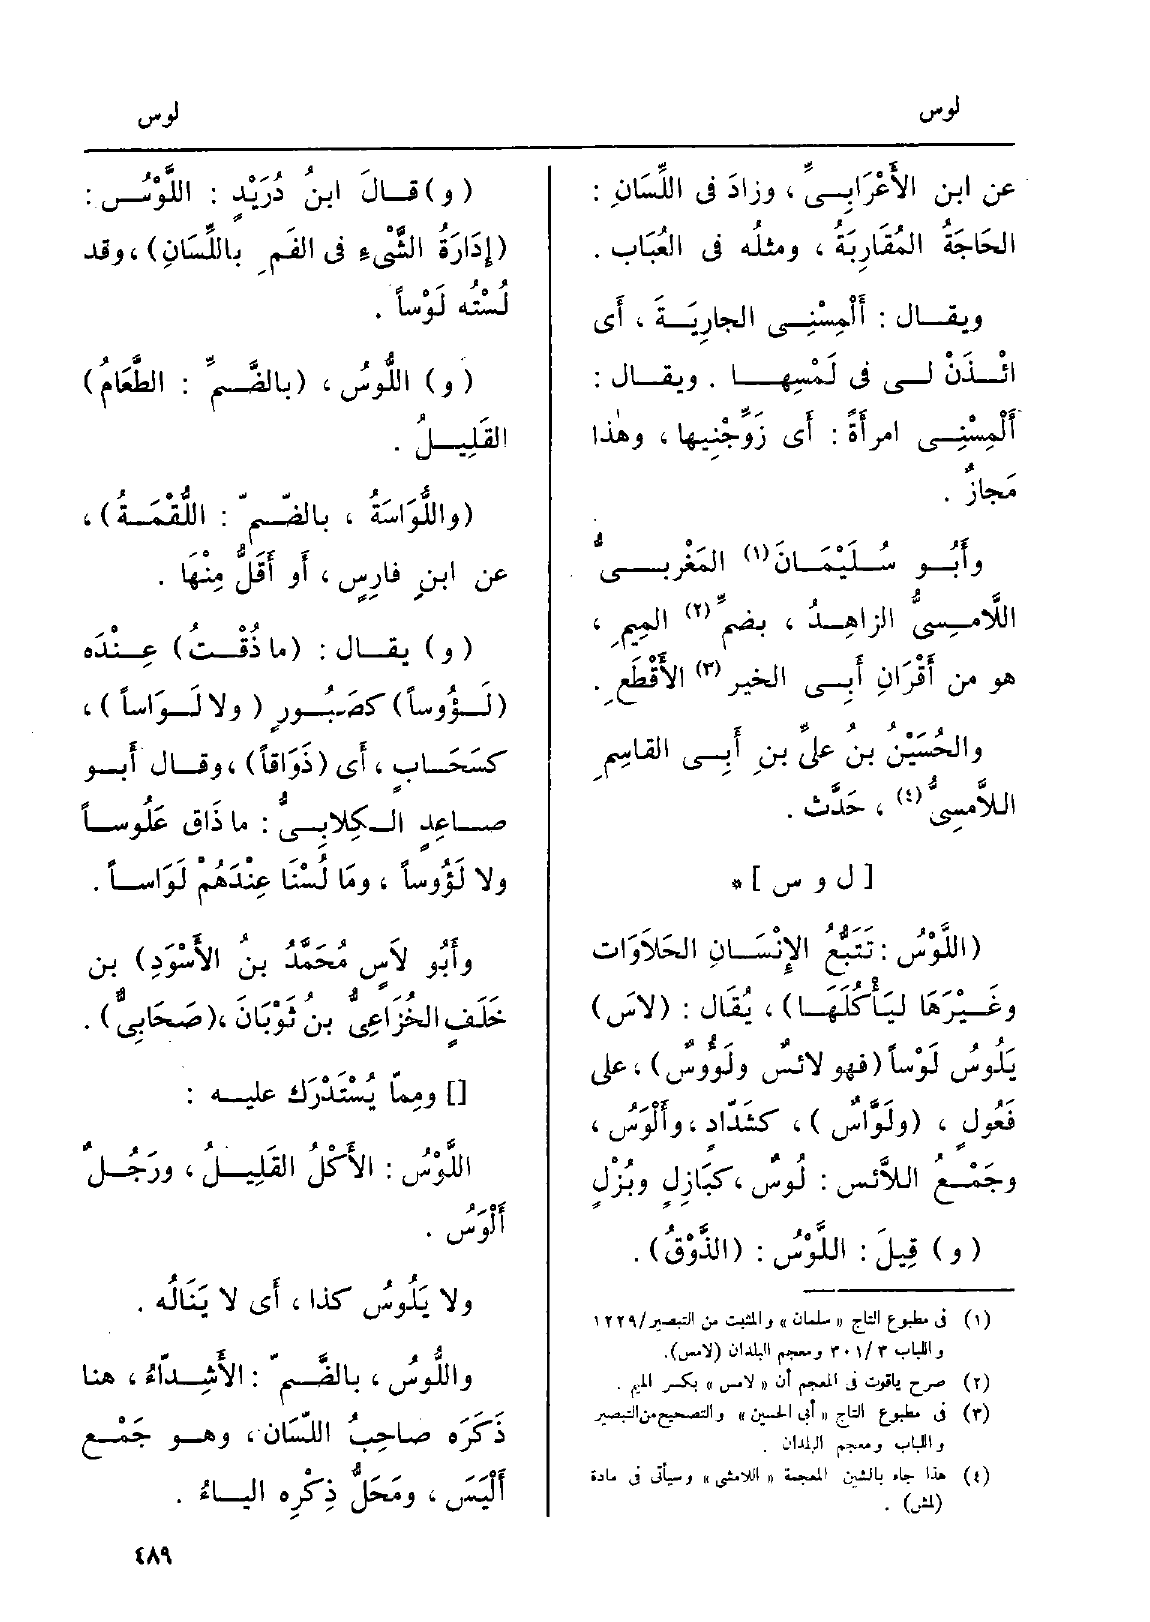 لوس
لوس
عن ابن الأَعْرَابِىِّ ، وزادَ فى اللِّسَانِ :
الحَاجَةُ المُقَارِبَةُ ، ومثلُه فى العُبَاب .
ويقال : أَلْمِسْنِى الجارِيَةَ ، أَى
ائْذَنْ لى فى لَمْسِها . ويقال :
أَلْمِسْنِى امرأَةً : أَى زَوِّجْنِيها ، وهٰذا
مَجازٌ .
وأَبُو سُلَيْمَانَ(١) المَغْرِبىُّ
اللَّامِسِىُّ الزاهِدُ ، بضمِّ(٢) المِيمِ ،
هو من أَقْرَانِ أَبِى الخير(٣) الأَقْطَعِ .
والحُسَيْنُ بنُ علىِّ بنِ أَبِى القاسِمِ
اللاَّمسِىُّ(٤) ، حَدَّث .
[ ل و س ] *
(اللَّوْسُ : تَتَبُّعُ الإِنْسَانِ الحَلاَوَات
وغَيْرَهَا ليَأْكُلَهَا) ، يُقَال : (لاسَ)
يَلُوسُ لَوْساً (فهو لائسٌ ولَوُوسٌ) ، على
فَعُولٍ ، (ولَوَّاسٌ) ، كشَدّادٍ ، وأَلْوَسُ ،
وجَمْعُ اللاَّئس : لُوسٌ ، كبَازِلٍ وبُزْلٍ
(و) قِيلَ : اللَّوْسُ : (الذَّوْقُ) .
(١) فى مطبوع التاج « سلمان » والمثبت من التبصير/١٢٢٩
واللباب ٣٠١/٣ ومعجم البلدان (لامس).
(٢) صرح ياقوت فى المعجم أن « لامس » بكسر الميم .
(٣) فى مطبوع التاج « أبى الحسين » والتصحيح من التبصير
واللباب ومعجم البلدان .
(٤) هذا جاء بالشين المعجمة « اللامشى » وسيأتى فى مادة
(لمش) .
(و) قالَ ابنُ دُرَيْدٍ : اللَّوْسُ :
(إِدَارَةُ الشَّىْءِ فى الفَمِ باللِّسَانِ) ، وقد
لُسْتُه لَوْساً .
(و) اللُّوسُ ، (بالضَّمِّ : الطَّعَامُ)
القَلِيلُ .
(واللُّوَاسَةُ ، بالضّمّ : اللُّقْمَةُ) ،
عن ابنِ فارِسٍ ، أَو أَقَلُّ مِنْهَا .
(و) يقال : (ما ذُقْتُ) عِنْدَه
(لَؤُوساً) كصَبُورٍ (ولا لَوَاساً) ،
كسَحَابٍ ، أَى (ذَوَاقاً) ، وقال أَبو
صاعِدٍ الكِلابِىُّ : ما ذَاق عَلُوساً
ولا لَؤُوساً ، ومَا لُسْنَا عِنْدَهُمْ لَوَاساً .
وأَبُو لاَسٍ مُحَمَّدُ بنُ الأَسْوَدِ) بن
خَلَفٍ الخُزَاعِىُّ بنُ ثَوْبَانَ ، (صَحَابِىُّ) .
[] ومِمّا يُسْتَدْرَك عليه :
اللَّوْسُ : الأَكْلُ القَلِيلُ ، ورَجُلٌ
أَلْوَسُ .
ولا يَلُوسُ كذا ، أَى لا يَنَالُه .
واللُّوسُ ، بالضَّمّ : الأَشِدّاءُ ، هنا
ذَكَرَه صاحِبُ اللّسَان ، وهو جَمْع
أَلْيَسَ ، ومَحَلُّ ذِكْرِه الياءُ .
٤٨٩